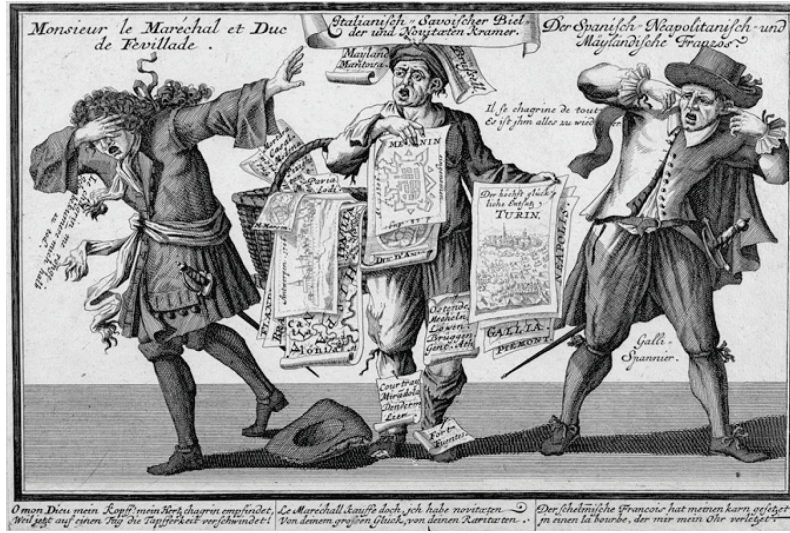 Monsieur le Maréchal et Duc
de Fevillade.
Italianisch-Savoischer Biel-
der und Novitæten Kramer.
Der Spanisch-Neapolitanisch-und
Mäyländische Franzos.
Mayland
Mantoua.
Il se chagrine de tout
Es ist jhm alles zu wieder
MENNIN
Pavia
Lodi
Der höchst glück
liche Entsatz
TURIN.
NEAPOLIS.
Antwerpen
GALLIA.
PIEMONT.
Ostende
Mecheln
Lowin
Brüggen
Gent Ath
Courtray
Miradola
Denderm
Leer
Fort
Fuentes
Galli-
Spannier.
O mon Dieu mein Kopff! mein Hertz chagrin empfindet,
Weil jetzt auf einen Tag die Tapfferkeit verschwindet!
Le Maréchall kauffe doch, ich habe novitæten
Von deinem grossen Gluck, von deinen Raritæten.
Der schelmische Francois hat meinen karn gesetzet
jn einen la bourbe, der mir mein Ohr verletzet.